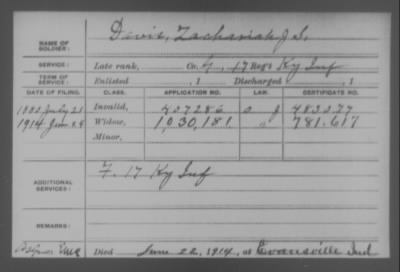 NAME OF SOLDIER: Davis, Zachariah J. S.
SERVICE: Late rank, Co. G, 17 Reg't Ky Inf
TERM OF SERVICE: Enlisted , 1 Discharged , 1
DATE OF FILING. CLASS. APPLICATION NO. LAW. CERTIFICATE NO.
1882 July 21 Invalid, 457286
Widow, 1,030,181 " 781.617
1914
Minor,
ADDITIONAL SERVICES: F. 17 Ky Inf
REMARKS:
Died June 22, 1914, at Evansville Ind